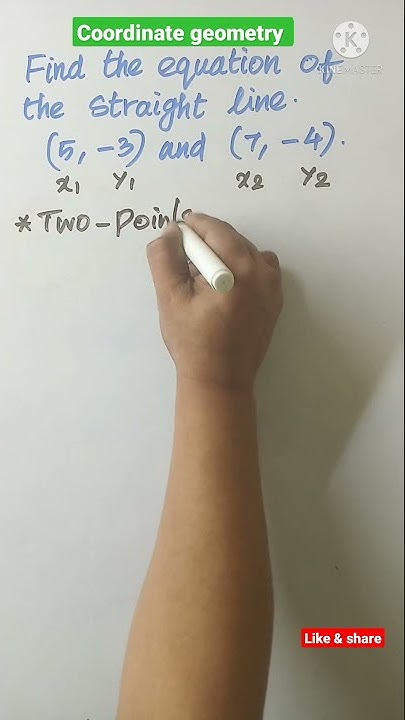 Coordinate geometry
Find the equation of
KINEMASTER
the straight line.
(5, -3) and (7, -4).
x₁ y₁ x₂ y₂
* Two-Points
Like & share